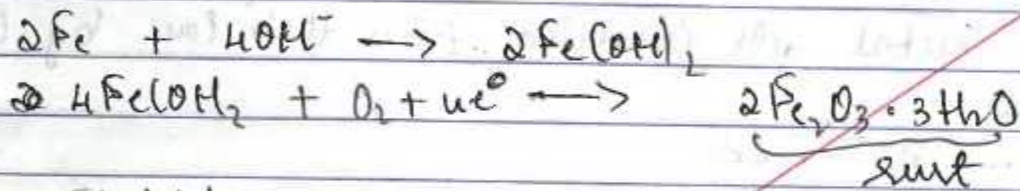 2Fe + 4OH⁻ → 2Fe(OH)₂
4Fe(OH₂ + O₂ + 4e⁻ → 2Fe₂O₃·3H₂O
rust